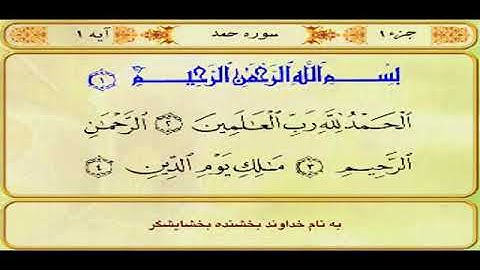 جزء ۱ سوره حمد آیه ۱
بِسْمِ ٱللَّهِ ٱلرَّحْمَٰنِ ٱلرَّحِيمِ ۝١
ٱلْحَمْدُ لِلَّهِ رَبِّ ٱلْعَـٰلَمِينَ ۝٢ ٱلرَّحْمَـٰنِ
ٱلرَّحِيمِ ۝٣ مَـٰلِكِ يَوْمِ ٱلدِّينِ ۝٤
به نام خداوند بخشنده بخشایشگر